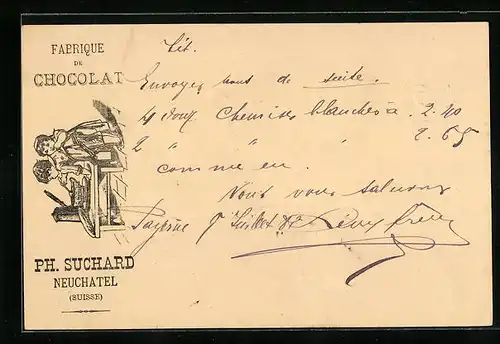 FABRIQUE
DE
CHOCOLAT
Envoyez nous de suite.
4 douz Chemises blanches à 2.20
2 " " " 2.65
comme en.
Nous vous saluons
Payerne 7 Juillet
PH. SUCHARD
NEUCHATEL
(SUISSE)